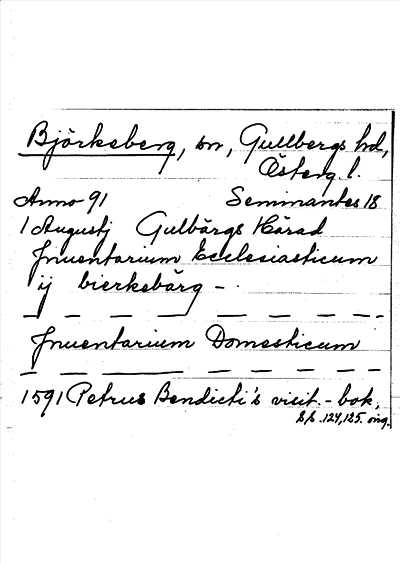 Björkeberg, sn, Gullbergs hd,
Österg. l.
Anno 91 Seminantes 18
1 Augustj Gulbärgs Härad
Inuentarium Ecclesiasticum
ij bierkebärg -
Inuentarium Domesticum
1591 Petrus Bendicti's visit.-bok,
S/s. 124, 125. orig.